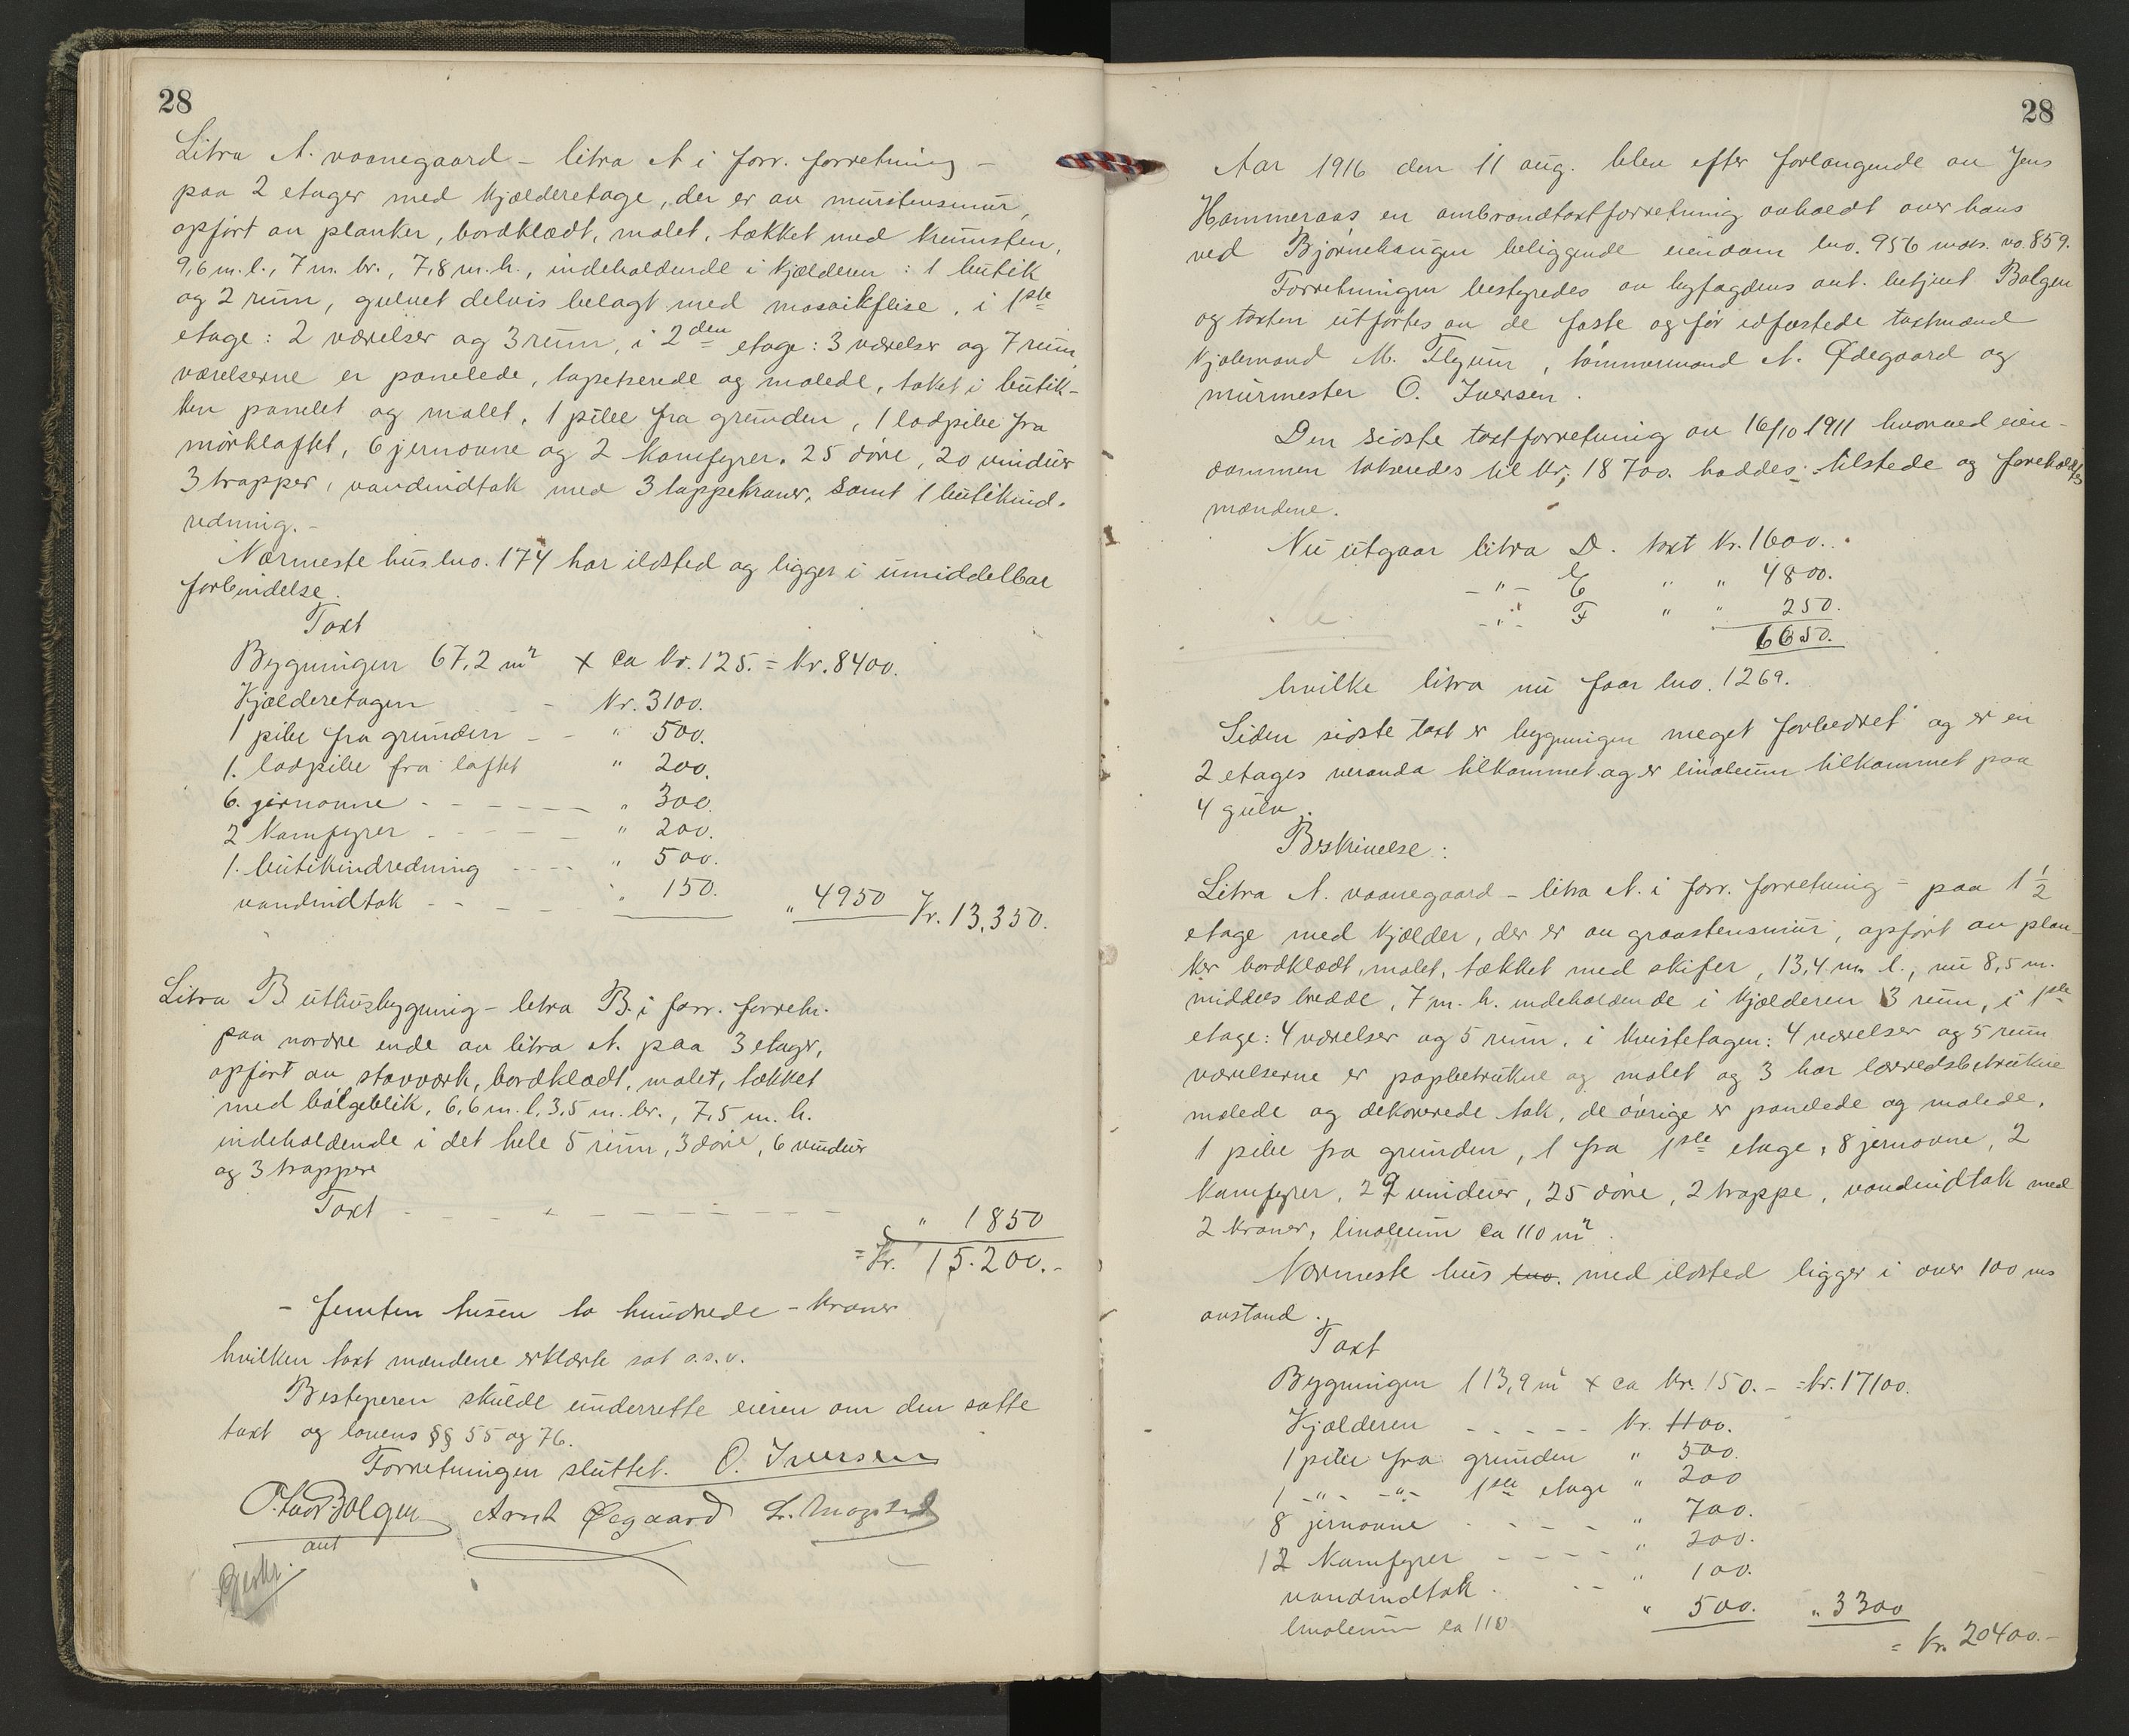 28
Litra A. vaanegaard - litra A i forr. forretning -
paa 2 etager med kjælderetage, der er av murstensmur,
opført av planker, bordklædt, malet, tækket med krumsten,
9,6 m. l., 7 m. br., 7,8 m. h., indeholdende i kjælderen: 1 butik
og 2 rum, gulvet delvis belagt med mosaikflise, i 1ste
etage: 2 værelser og 3 rum, i 2den etage: 3 værelser og 7 rum,
værelserne er panelede, tapetserede og malede, taket i butik-
ken panelet og malet. 1 pibe fra grunden, 1 lodpibe fra
mørkloftet, 6 jernovne og 2 komfyrer. 25 døre, 20 vinduer
3 trapper, vandindtak med 3 tappekraner, samt 1 butikind-
redning. -
Nærmeste hus bno. 174 har ildsted og ligger i umiddelbar
forbindelse.
Taxt
Bygningen 67,2 m² x ca kr. 125. = kr. 8400.
Kjælderetagen - kr. 3100.
1 pibe fra grunden - - " 500.
1. lodpibe fra loftet " 200.
6. jernovne - - - - - " 300.
2 komfyrer - - - - - " 200.
1. butikindredning - - - - " 500.
vandindtak - - - - " 150. " 4950 Kr. 13,350.
Litra B uthusbygning - letra B. i forr. forretn.
paa nordre ende av litra A. paa 3 etager,
opført av stavværk, bordklædt, malet, tækket
med bølgeblik, 6,6 m. l. 3,5 m. br., 7,5 m. h.
indeholdende i det hele 5 rum, 3 døre, 6 vinduer
og 3 trapper
Taxt - - - - - - - - - " 1850
= Kr. 15.200. -
- femten tusen to hundrede - kroner
hvilken taxt mændene erklærte sat o.s.v.
Bestyreren skulde underrette eieren om den satte
taxt og lovens §§ 55 og 76.
Forretningen sluttet. O. Iversen
Bolgen Arnt Øegaard
aut
28
Aar 1916 den 11 aug. blev efter forlangende av Jens
Hammeraas en ombrandtaxtforretning avholdt over hans
ved Bjørnehaugen beliggende eiendom bno. 956 matr. no. 859.
Forretningen bestyredes av byfogdens aut. betjent Bolgen
og taxten utførtes av de faste og før edfæstede taxtmænd
kjølemand M. Flygum, tømmermand A. Ødegaard og
murmester O. Iversen.
Den sidste taxtforretning av 16/10 1911 hvorved eien-
dommen takseredes til kr. 18700. haddes tilstede og foreholdtes
mændene.
Nu utgaar litra D. taxt kr. 1600.
- " - E " " 4800.
- " - F " " 250.
6650.
hvilke litra nu faar bno. 1269.
Siden sidste taxt er bygningen meget forbedret og er en
2 etages veranda tilkommet og er linoleum tilkommet paa
4 gulv.
Beskrivelse:
Litra A. vaanegaard - litra A. i forr. forretning - paa 1 1/2
etage med kjælder, der er av graastensmur, opført av plan-
ker bordklædt, malet, tækket med skifer, 13,4 m. l., nu 8,5 m.
middels bredde, 7 m. h. indeholdende i kjælderen 3 rum, i 1ste
etage: 4 værelser og 5 rum, i kvistetagen: 4 værelser og 5 rum
værelserne er papbetrukne og malet og 3 har lærredsbetrukne
malede og dekorerede tak, de øvrige er panelede og malede.
1 pibe fra grunden, 1 fra 1ste etage, 8 jernovne, 2
komfyrer, 22 vinduer, 25 døre, 2 trappe, vandindtak med
2 kraner, linoleum ca 110 m².
Nærmeste hus bno. med ildsted ligger i over 100 ms
avstand.
Taxt
Bygningen 113,9 m² x ca kr. 150. - = kr. 17100.
Kjælderen - - - - - kr. 1100.
1 pibe fra grunden " 500.
1 - " - - " - 1ste etage " 200
8 jernovne - - - - " 700.
12 Komfyrer - - - - " 200.
vandindtak - - " 100.
linoleum ca 110 " 500. " 3300
= kr. 20400. -